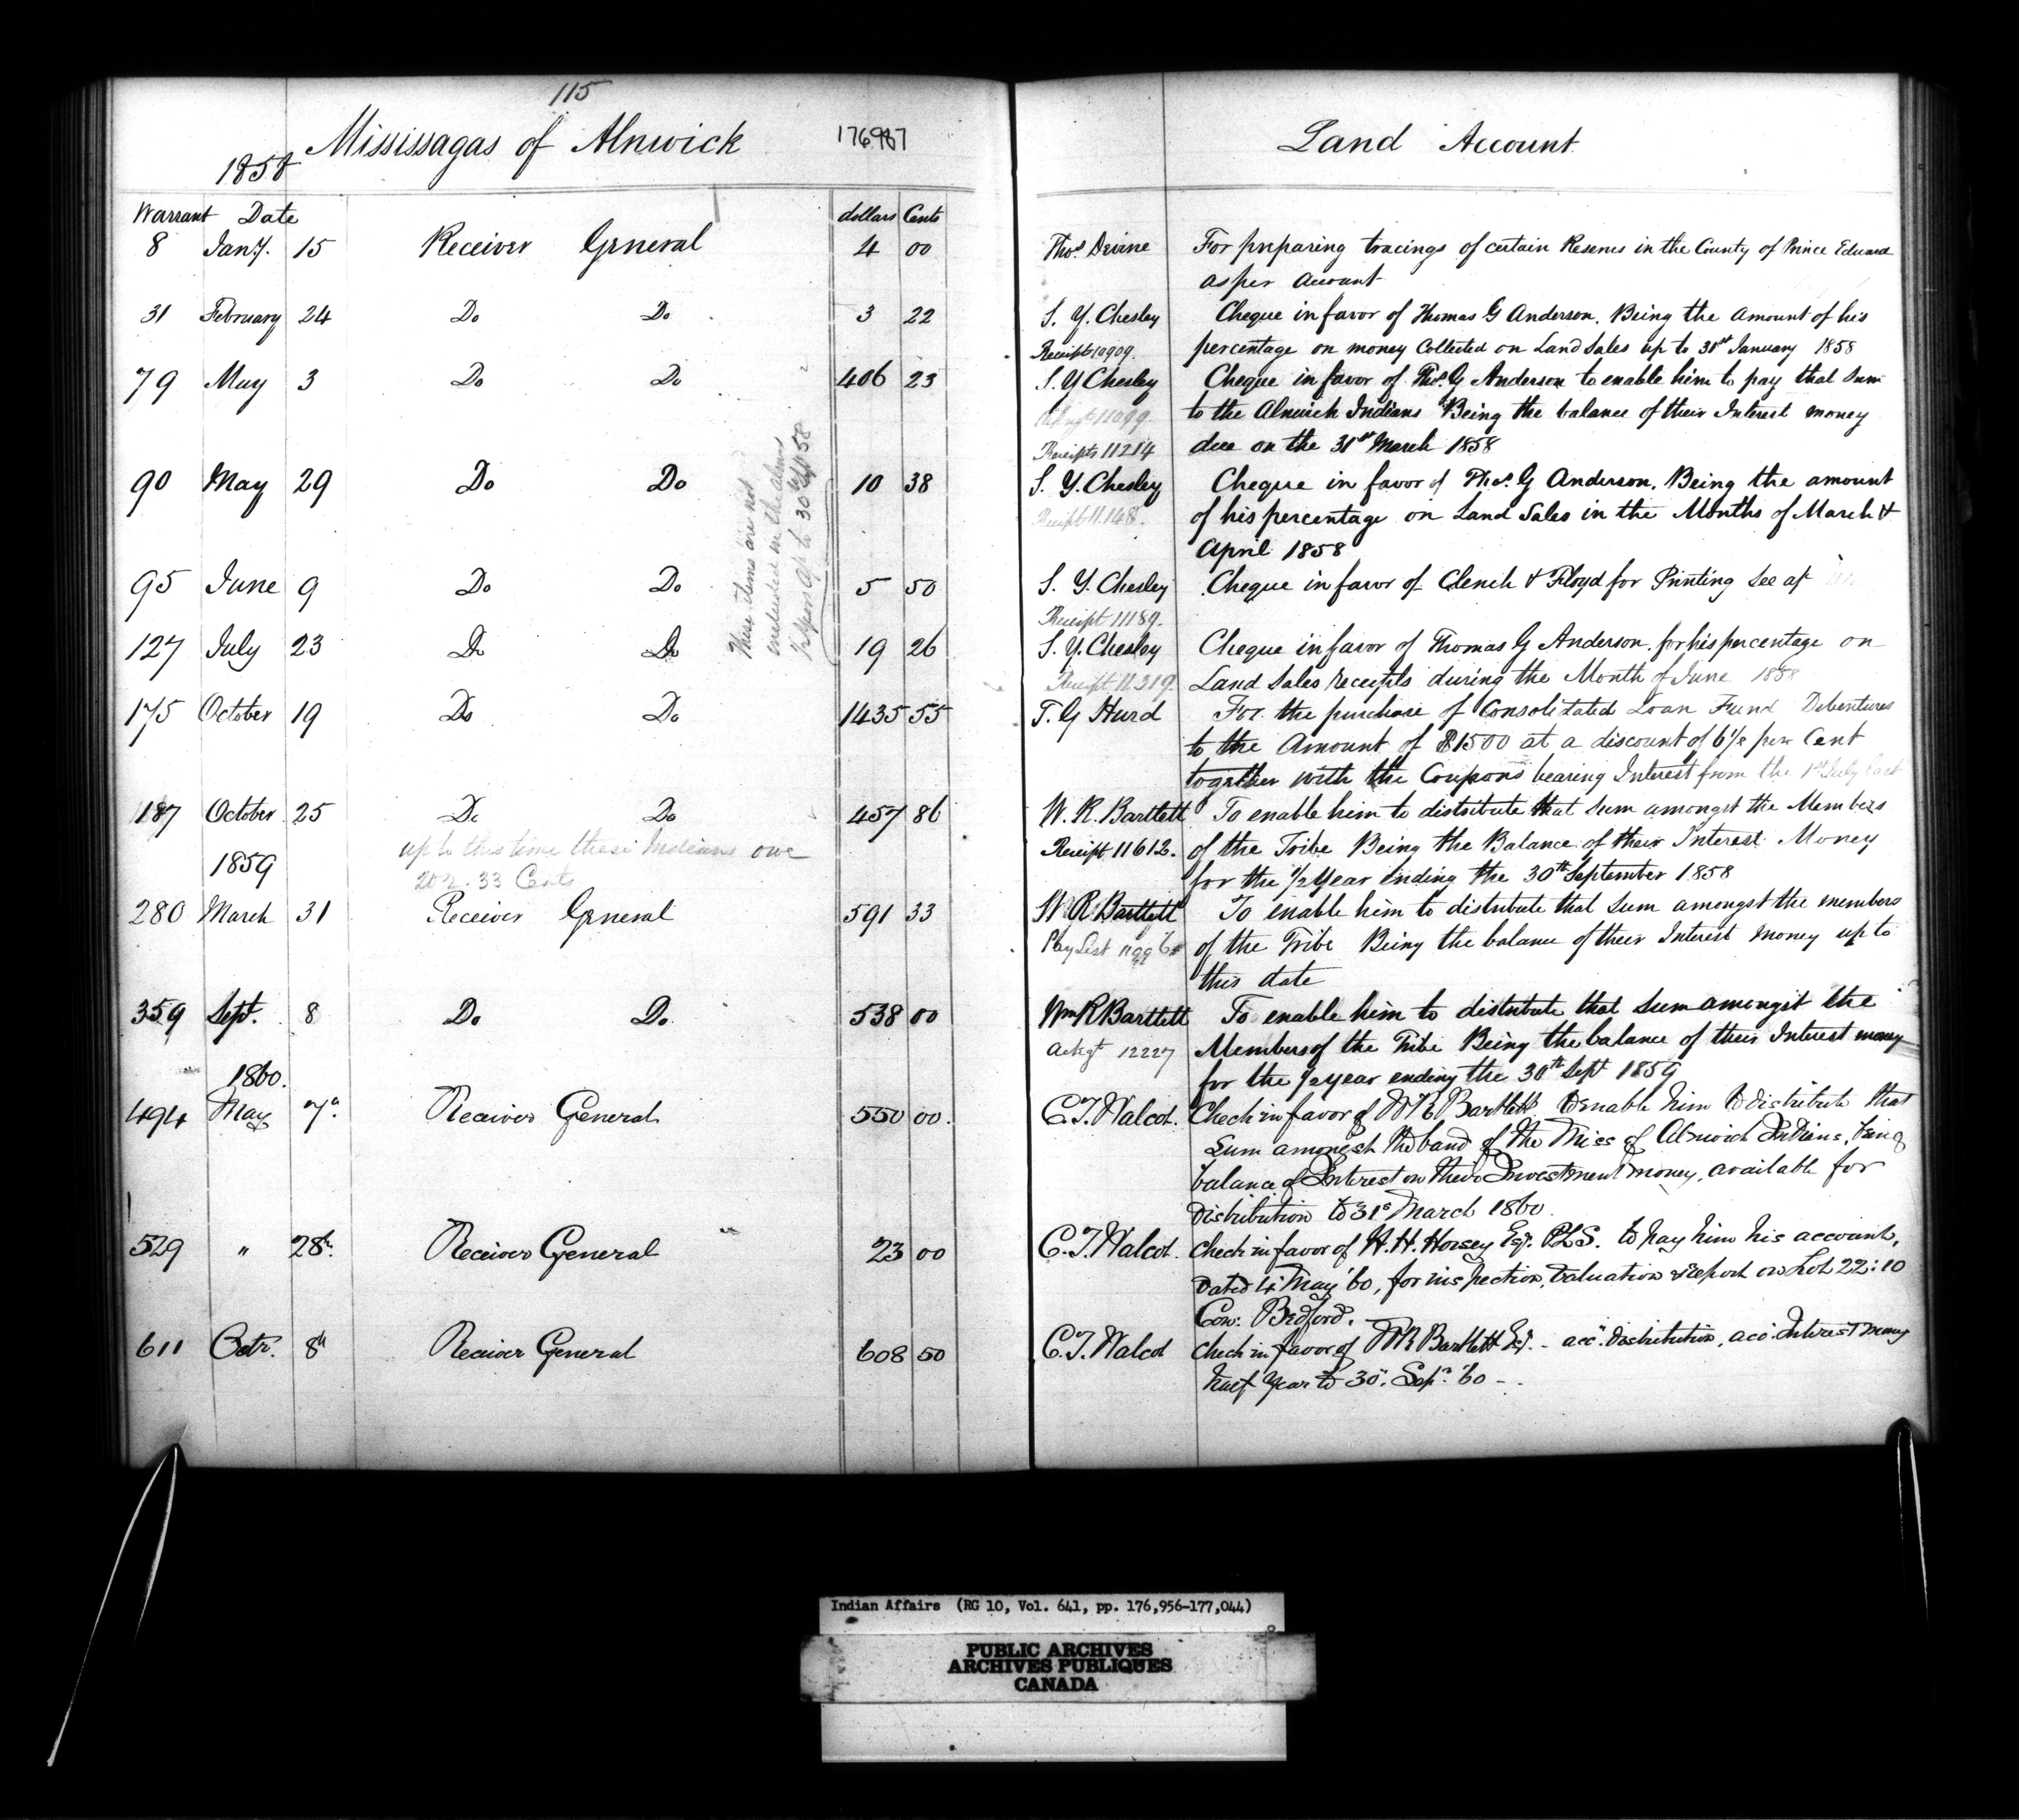 115
Mississagas of Alnwick 176987
1858
Warrant Date dollars Cents
8 Jany. 15 Receiver General 4 00
31 February 24 Do Do 3 22
79 May 3 Do Do 406 23
90 May 29 Do Do 10 38
95 June 9 Do Do 5 50
127 July 23 Do Do 19 26
175 October 19 Do Do 1435 55
187 October 25 Do Do 457 86
up to this time these Indians owe
202.33 Cents
1859
280 March 31 Receiver General 591 33
359 Sept. 8 Do Do 538 00
1860.
494 May 7 Receiver General 550 00.
529 " 28th Receiver General 23 00
611 Octr. 8th Receiver General 608 50
These items are not
included in the
up to 30 58
Land Account
Thos. Devine For preparing tracings of certain Reserves in the County of Prince Edward
as per account
S. Y. Chesley Cheque in favor of Thomas G Anderson. Being the amount of his
Receipt 10909. percentage on money Collected on Land Sales up to 31st January 1858
S. Y Chesley Cheque in favor of Thos. G Anderson to enable him to pay that Sum
11099. to the Alnwick Indians Being the balance of their Interest money
Receipts 11214 due on the 31st March 1858
S. Y. Chesley Cheque in favor of Thos. G Anderson. Being the amount
Receipt 11.148. of his percentage on Land Sales in the Months of March &
April 1858
S. Y. Chesley Cheque in favor of Clench & Floyd for Printing See
Receipt 11189.
S. Y. Chesley Cheque in favor of Thomas G Anderson. for his percentage on
Receipt 11319. Land Sales receipts during the Month of June 1858
T. G Hurd For the purchase of Consolidated Loan Fund Debentures
to the Amount of $1500 at a discount of 6½ per Cent
together with the Coupons bearing Interest from the 1st July last
W. R. Bartlett To enable him to distribute that Sum amongst the Members
Receipt 11612. of the Tribe Being the Balance of their Interest Money
for the 1/2 Year Ending the 30th September 1858
W R Bartlett To enable him to distribute that Sum amongst the members
Pay List of the Tribe Being the balance of their Interest money up to
this date
Wm R Bartlett To enable him to distribute that Sum amongst the
12227 Members of the Tribe Being the balance of their Interest money
for the 1/2 year ending the 30th Sept 1859
C. T. Walcot. Check in favor of W R Bartlett to enable him to distribute that
Sum amongst the band of the Miss of Alnwick Indians, being
balance of Interest on their Investment money, available for
distribution to 31st March 1860.
C. T. Walcot. Check in favor of H. H. Horsey Esqr. P.L.S. to pay him his account,
Dated 4 May '60, for inspection, valuation & report on Lot 22: 10
Con: Bedford.
C. T. Walcot Check in favor of W R Bartlett Esqr. - acct. distribution, acct. Interest money
half Year to 30. Sepr. '60 -
Indian Affairs (RG 10, Vol. 641, pp. 176,956-177,044)
PUBLIC ARCHIVES
ARCHIVES PUBLIQUES
CANADA